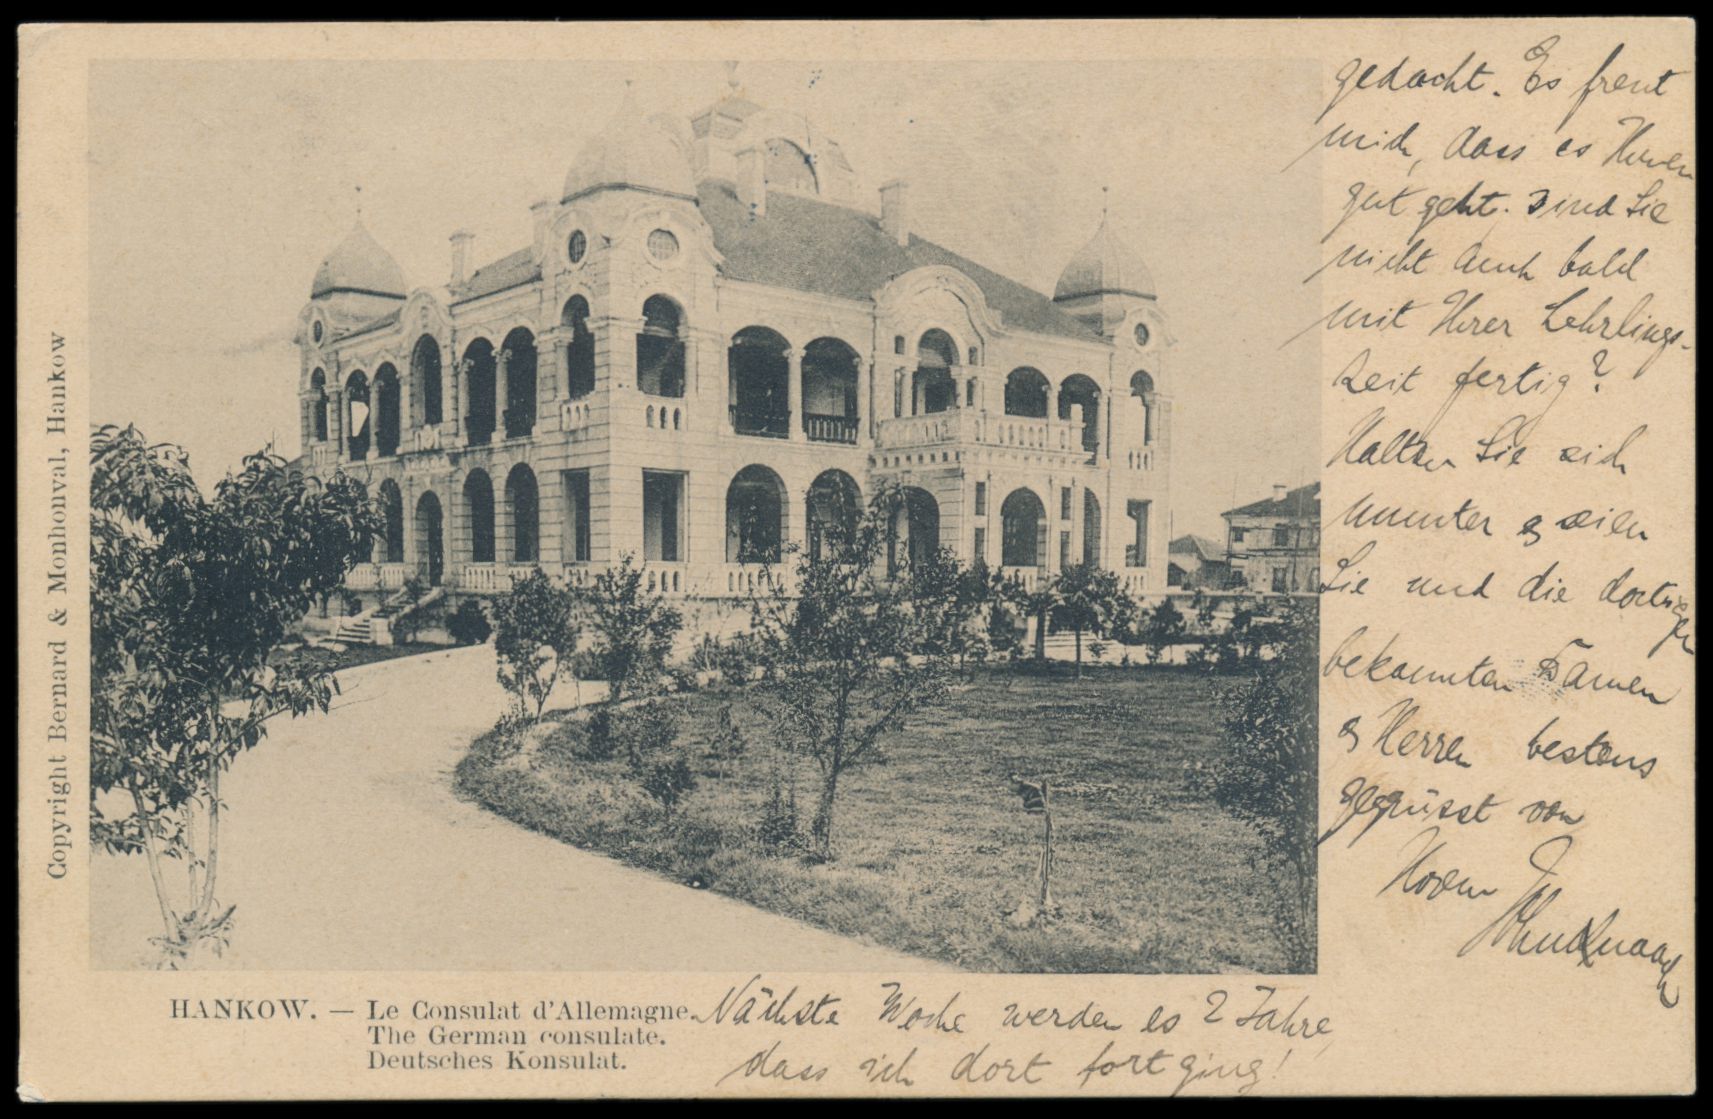 Copyright Bernard & Monhonval, Hankow
gedacht. Es freut
mich, dass es Ihnen
gut geht. Sind Sie
nicht auch bald
mit Ihrer Lehrlings-
zeit fertig?
Halten Sie sich
munter & seien
Sie und die dortigen
bekannten Damen
& Herren bestens
gegrüsst von
Ihrem
HANKOW. — Le Consulat d'Allemagne.
The German consulate.
Deutsches Konsulat.
Nächste Woche werden es 2 Jahre,
dass ich dort fortging!